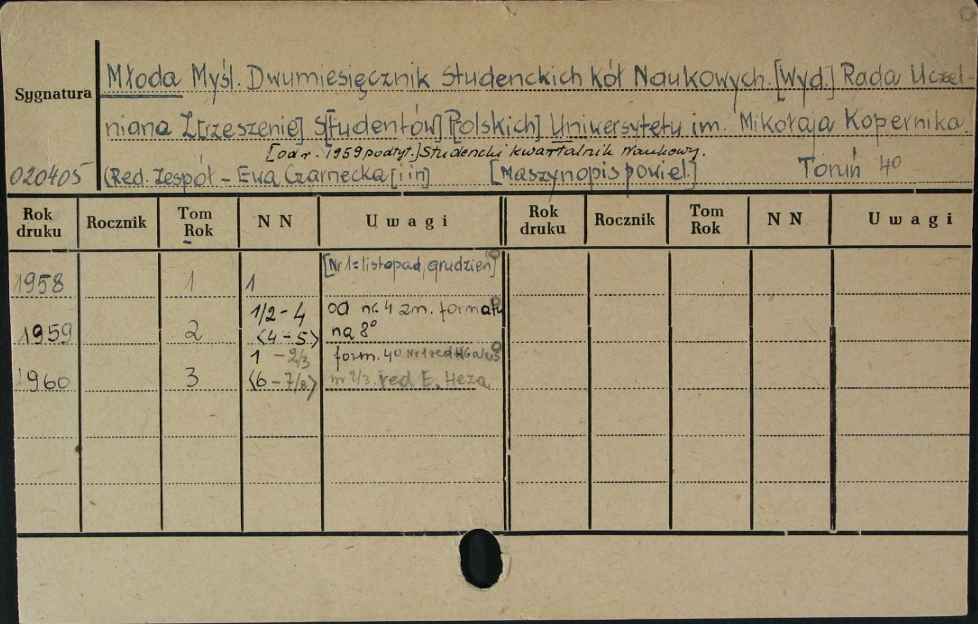 Młoda Myśl. Dwumiesięcznik Studenckich Kół Naukowych. [Wyd.] Rada Uczel-
Sygnatura
niana Z[rzeszenie] S[tudentów] P[olskich] Uniwersytetu im. Mikołaja Kopernika.
[od r. 1959 podtyt.] Studencki kwartalnik naukowy.
020405 (Red. Zespół - Ewa Czarnecka [i in] [Maszynopis powiel.] Toruń 4º
Rok druku Rocznik Tom Rok NN Uwagi Rok druku Rocznik Tom Rok NN Uwagi
1958 1 1 [Nr 1 = listopad, grudzień]
1/2 - 4 od nr. 4 zm. formatu
1959 2 <4-5> na 8º
1 - 2/3 form. 4º Nr 1 red
1960 3 <6-7/8> nr 2/3 red E. Heza